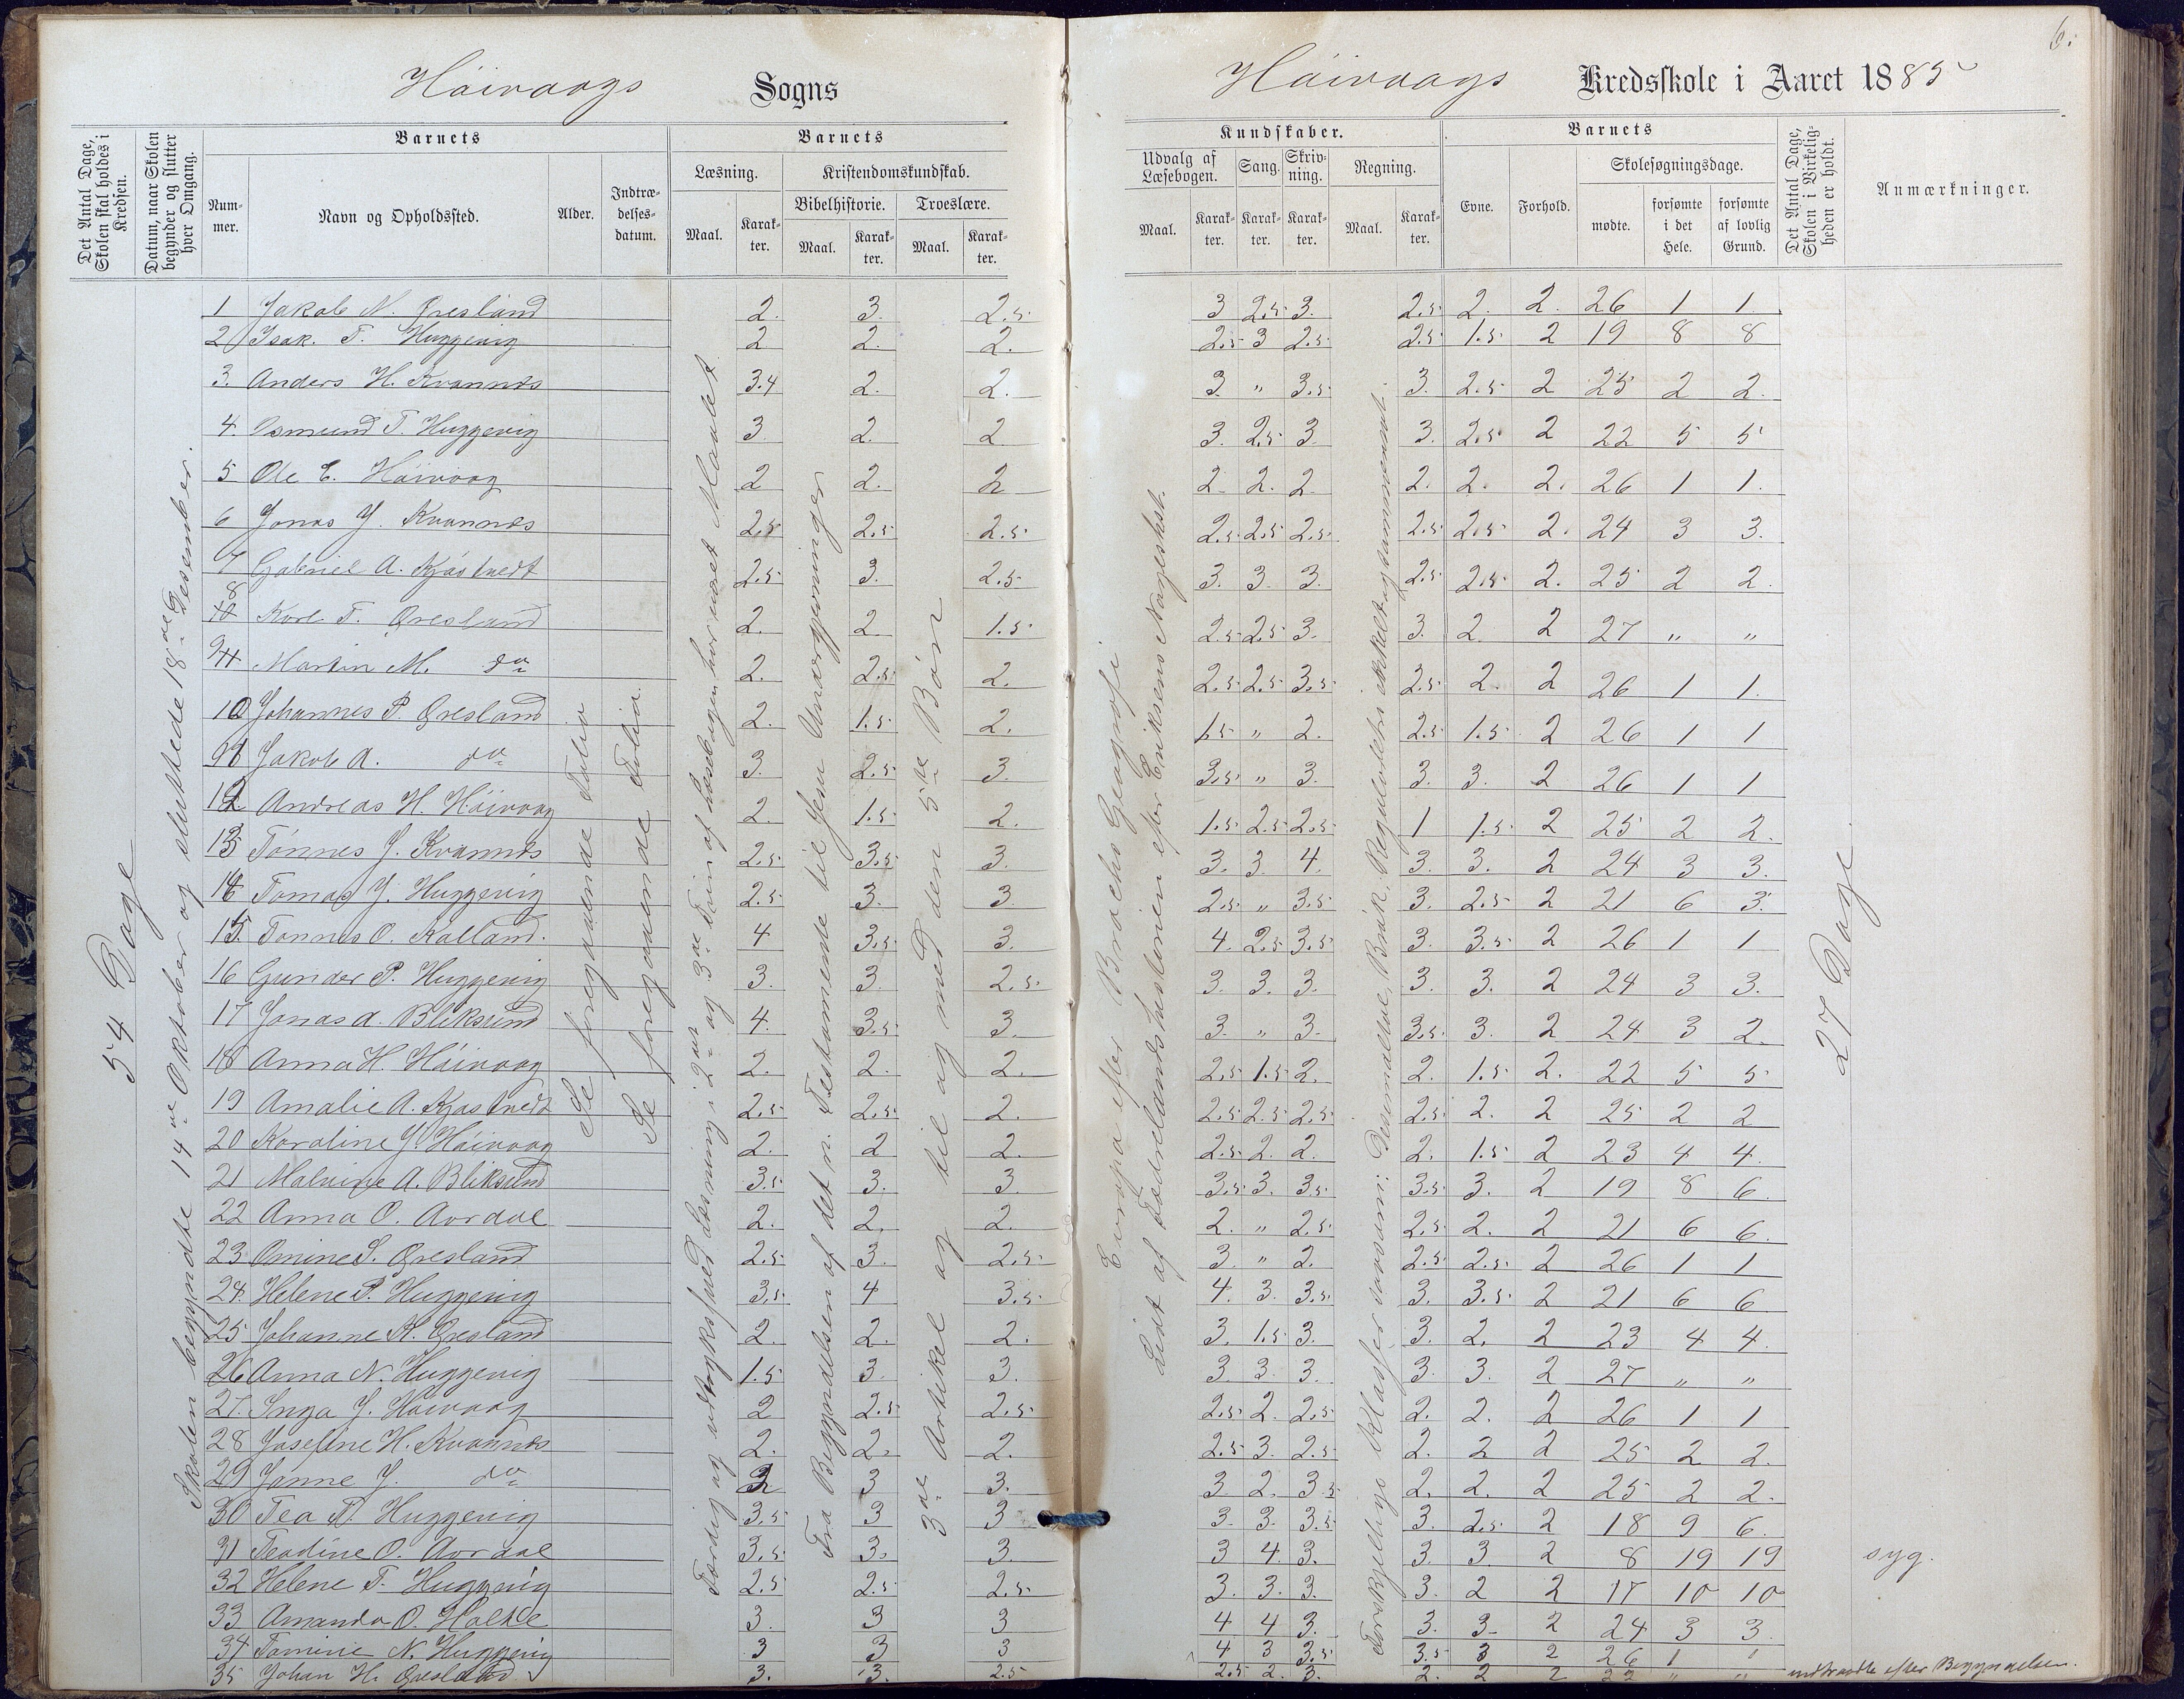 6.
Höivaags Sogns
Höivaags Kredsskole i Aaret 1885
Det Antal Dage, Skolen skal holdes i Kredsen.
Datum, naar Skolen begynder og slutter hver Omgang.
Barnets
Nummer.
Navn og Opholdssted.
Alder.
Indtrædelsesdatum.
Barnets
Læsning.
Maal.
Karakter.
Kristendomskundskab.
Bibelhistorie.
Maal.
Karakter.
Troeslære.
Maal.
Karakter.
Kundskaber.
Udvalg af Læsebogen.
Maal.
Karakter.
Sang.
Karakter.
Skrivning.
Karakter.
Regning.
Maal.
Karakter.
Barnets
Evne.
Forhold.
Skolesøgningsdage.
mødte.
forsømte i det Hele.
forsømte af lovlig Grund.
Det Antal Dage, Skolen i Virkeligheden er holdt.
Anmærkninger.
54 Dage
Skolen begyndte 14de Oktober og sluttede 18de Desember.
Se foregaaende Folio
Se foregaaende Folio.
Færdig og udtryksfuld Læsning i 2det og 3die Trin af Læsebogen har været Maalet.
Fra Begyndelsen af det n. Testamente til Jesu Undergjerninger
3die Artikel og til og med den 5te Bøn
Europa efter Brochs Geografi
Lidt af Fædrelandshistorien efter Eriksens Norgeshist.
Forskjellige Klasser saasom: Desimaltal, Brök, Reguladetri enkelt og sammensat.
27 Dage
1 Jakob N. Øresland 2. 3. 2.5 3 2.5 3. 2.5 2. 2. 26 1 1.
2 Isak. T. Huggenig 2 2. 2. 2.5 3 2.5 2.5 1.5 2 19 8 8
3. Anders H. Kvannes 3.4 2. 2. 3. " 3.5 3. 2.5 2 25 2 2.
4. Osmund T. Huggenig 3. 2. 2 3. 2.5 3. 3. 2.5 2 22 5 5
5 Ole E. Höivaag 2 2. 2 2. 2. 2. 2. 2. 2. 26 1 1.
6 Jonas J. Kvannes 2.5 2.5 2.5 2.5 2.5 2.5 2.5 2.5 2. 24 3 3.
7 Gabriel A. Kjöstvedt 2.5 3. 2.5 3. 3. 3. 2.5 2.5 2. 25 2 2.
8 Karl T. Øresland 2. 2. 1.5 2.5 2.5 3. 3. 2. 2 27 " "
9 Martin M. do 2. 2.5 2. 2.5 2.5 3.5 2.5 2. 2 26 1 1.
10 Johannes P. Øresland 2. 1.5 2. 1.5 " 2. 2.5 1.5 2 26 1 1
11 Jakob A. do 3. 2.5 3. 3.5 " 3. 3. 3. 2 26 1 1
12 Andreas H. Höivaag 2. 1.5 2. 1.5 2.5 2.5 1 1.5 2 25 2 2.
13 Tönnes J. Kvannes 2.5 3.5 3. 3. 3. 4. 3. 3. 2 24 3 3.
14 Tomas J. Huggenig 2.5 3. 3 2.5 " 3.5 3. 2.5 2 21 6 3.
15 Tönnes O. Kalland. 4 3.5 3. 4. 2.5 3.5 3. 3.5 2 26 1 1
16 Gunder P. Huggenig 3. 3. 2.5 3. 3. 3. 3. 3. 2 24 3 3.
17 Jonas A. Bliksund 4. 3.5 3. 3. " 3. 3.5 3. 2 24 3 2.
18 Anna H. Höivaag 2. 2. 2. 2.5 1.5 2. 2. 1.5 2. 22 5 5
19 Amalie A. Kjöstvedt 2.5 2.5 2. 2.5 2.5 2.5 2.5 2. 2 25 2 2
20 Karoline J. Höivaag 2. 2 2. 2.5 2. 2. 2. 1.5 2 23 4 4.
21 Malvine A. Bliksund 3.5 3. 3. 3.5 3. 3.5 3.5 3. 2 19 8 6.
22 Anna O. Aardal 2. 2. 2. 2. " 2.5 2.5 2. 2 21 6 6.
23 Omine S. Øresland 2.5 3. 2.5 3. " 2. 2.5 2.5 2 26 1 1
24. Helene P. Huggenig 3.5 4 3.5 4. 3. 3.5 3. 3.5 2 21 6 6
25 Johanne K. Øresland 2. 2. 2. 3. 1.5 3. 3. 2. 2 23 4 4.
26 Anna N. Huggenig 1.5 3. 3. 3 3 3. 3. 3. 2 27 " "
27. Inga J. Höivaag 2 2.5 2.5 2.5 2. 2.5 2. 2. 2 26 1 1
28 Josefine H. Kvannes 2. 2. 2. 2.5 3. 2.5 2. 2 2 25 2 2.
29 Janne J. do 3 3. 3 2. 3.5 2. 2. 2 25 2 2.
30 Tea N. Huggenig 3.5 3 3 3. 3. 3.5 3. 2.5 2 18 9 6.
31 Teodine O. Aardal 3.5 3. 3. 3 4. 3. 3. 3. 2 8 19 19 syg.
32 Helene T. Huggenig 2.5 2.5 2.5 3. 3. 3. 3. 2 2 17 10 10
33 Amanda O. Holtte 3. 3 3 4 4 3. 3. 3. 2 24 3 3.
34 Tomine N. Huggenig 3 3 3 4 3 3.5 3.5 3 2 26 1 "
35 Johan H. Øresland 3. 3. 2.5 2.5 2. 3. 2. 2 2 22 " " indtraadte efter Begyndelsen.